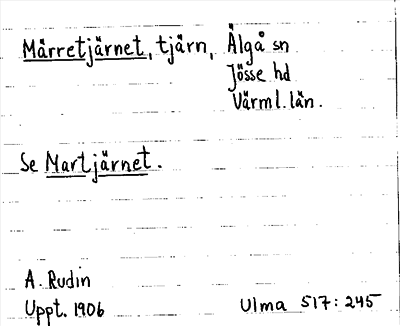 Märretjärnet, tjärn, Älgå sn
Jösse hd
Värml. län.
Se Martjärnet.
A. Rudin
Uppt. 1906
Ulma 517: 245